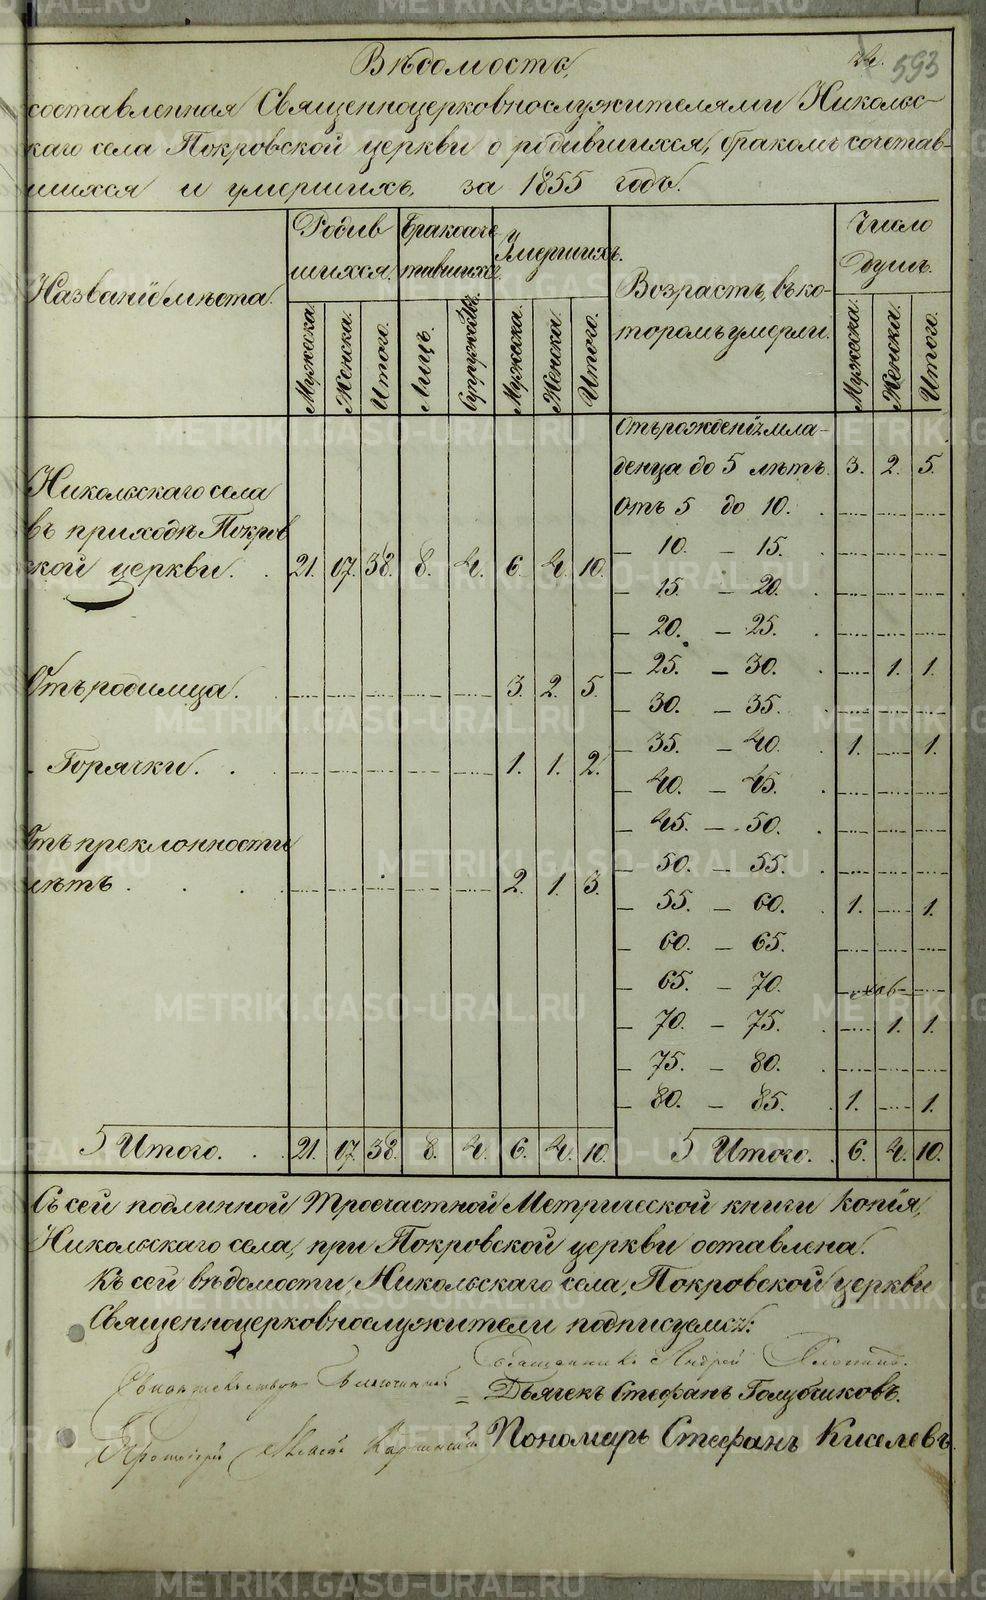 Вѣдомость,
593
составленная Священноцерковнослужителями Никольс-
каго села Покровской церкви о родившихся, бракомъ сочетав-
шихся и умершихъ, за 1855 годъ.
Названіе мѣста.
Родив
шихся.
Бракосоче
тавшихся.
Умершихъ.
Возрастъ, въ ко-
торомъ умерли.
Число
душъ.
Мужеска. Женска. Итого. Лицъ. Супружествъ. Мужеска. Женска. Итого. Мужеска. Женска. Итого.
Отъ рожденія мла-
денца до 5 лѣтъ. 3. 2. 5.
Никольскаго села
въ приходѣ Покров
ской церкви. 21. 17. 38. 8. 4. 6. 4. 10.
Отъ родимца. 3. 2. 5.
Горячки. 1. 1. 2.
Отъ преклонности
лѣтъ. 2. 1. 3.
Отъ 5 до 10.
— 10. — 15.
— 15. — 20.
— 20. — 25.
— 25. — 30. 1. 1.
— 30. — 35.
— 35. — 40. 1. 1.
— 40. — 45.
— 45. — 50.
— 50. — 55.
— 55. — 60. 1. 1.
— 60. — 65.
— 65. — 70.
— 70. — 75. 1. 1.
— 75. — 80.
— 80. — 85. 1. 1.
Итого. 21. 17. 38. 8. 4. 6. 4. 10. Итого. 6. 4. 10.
Съ сей подлинной троечастной Метрической книги копія,
Никольскаго села, при Покровской церкви оставлена.
Къ сей вѣдомости, Никольскаго села, Покровской церкви
Священноцерковнослужители подписуемсѧ:
Священникъ Андрей
Свидѣтельствовалъ Благочинный
Дьячекъ Стефанъ Голубчиковъ.
Протоіерей
Пономарь Стефанъ Киселевъ.
METRIKI.GASO-URAL.RU